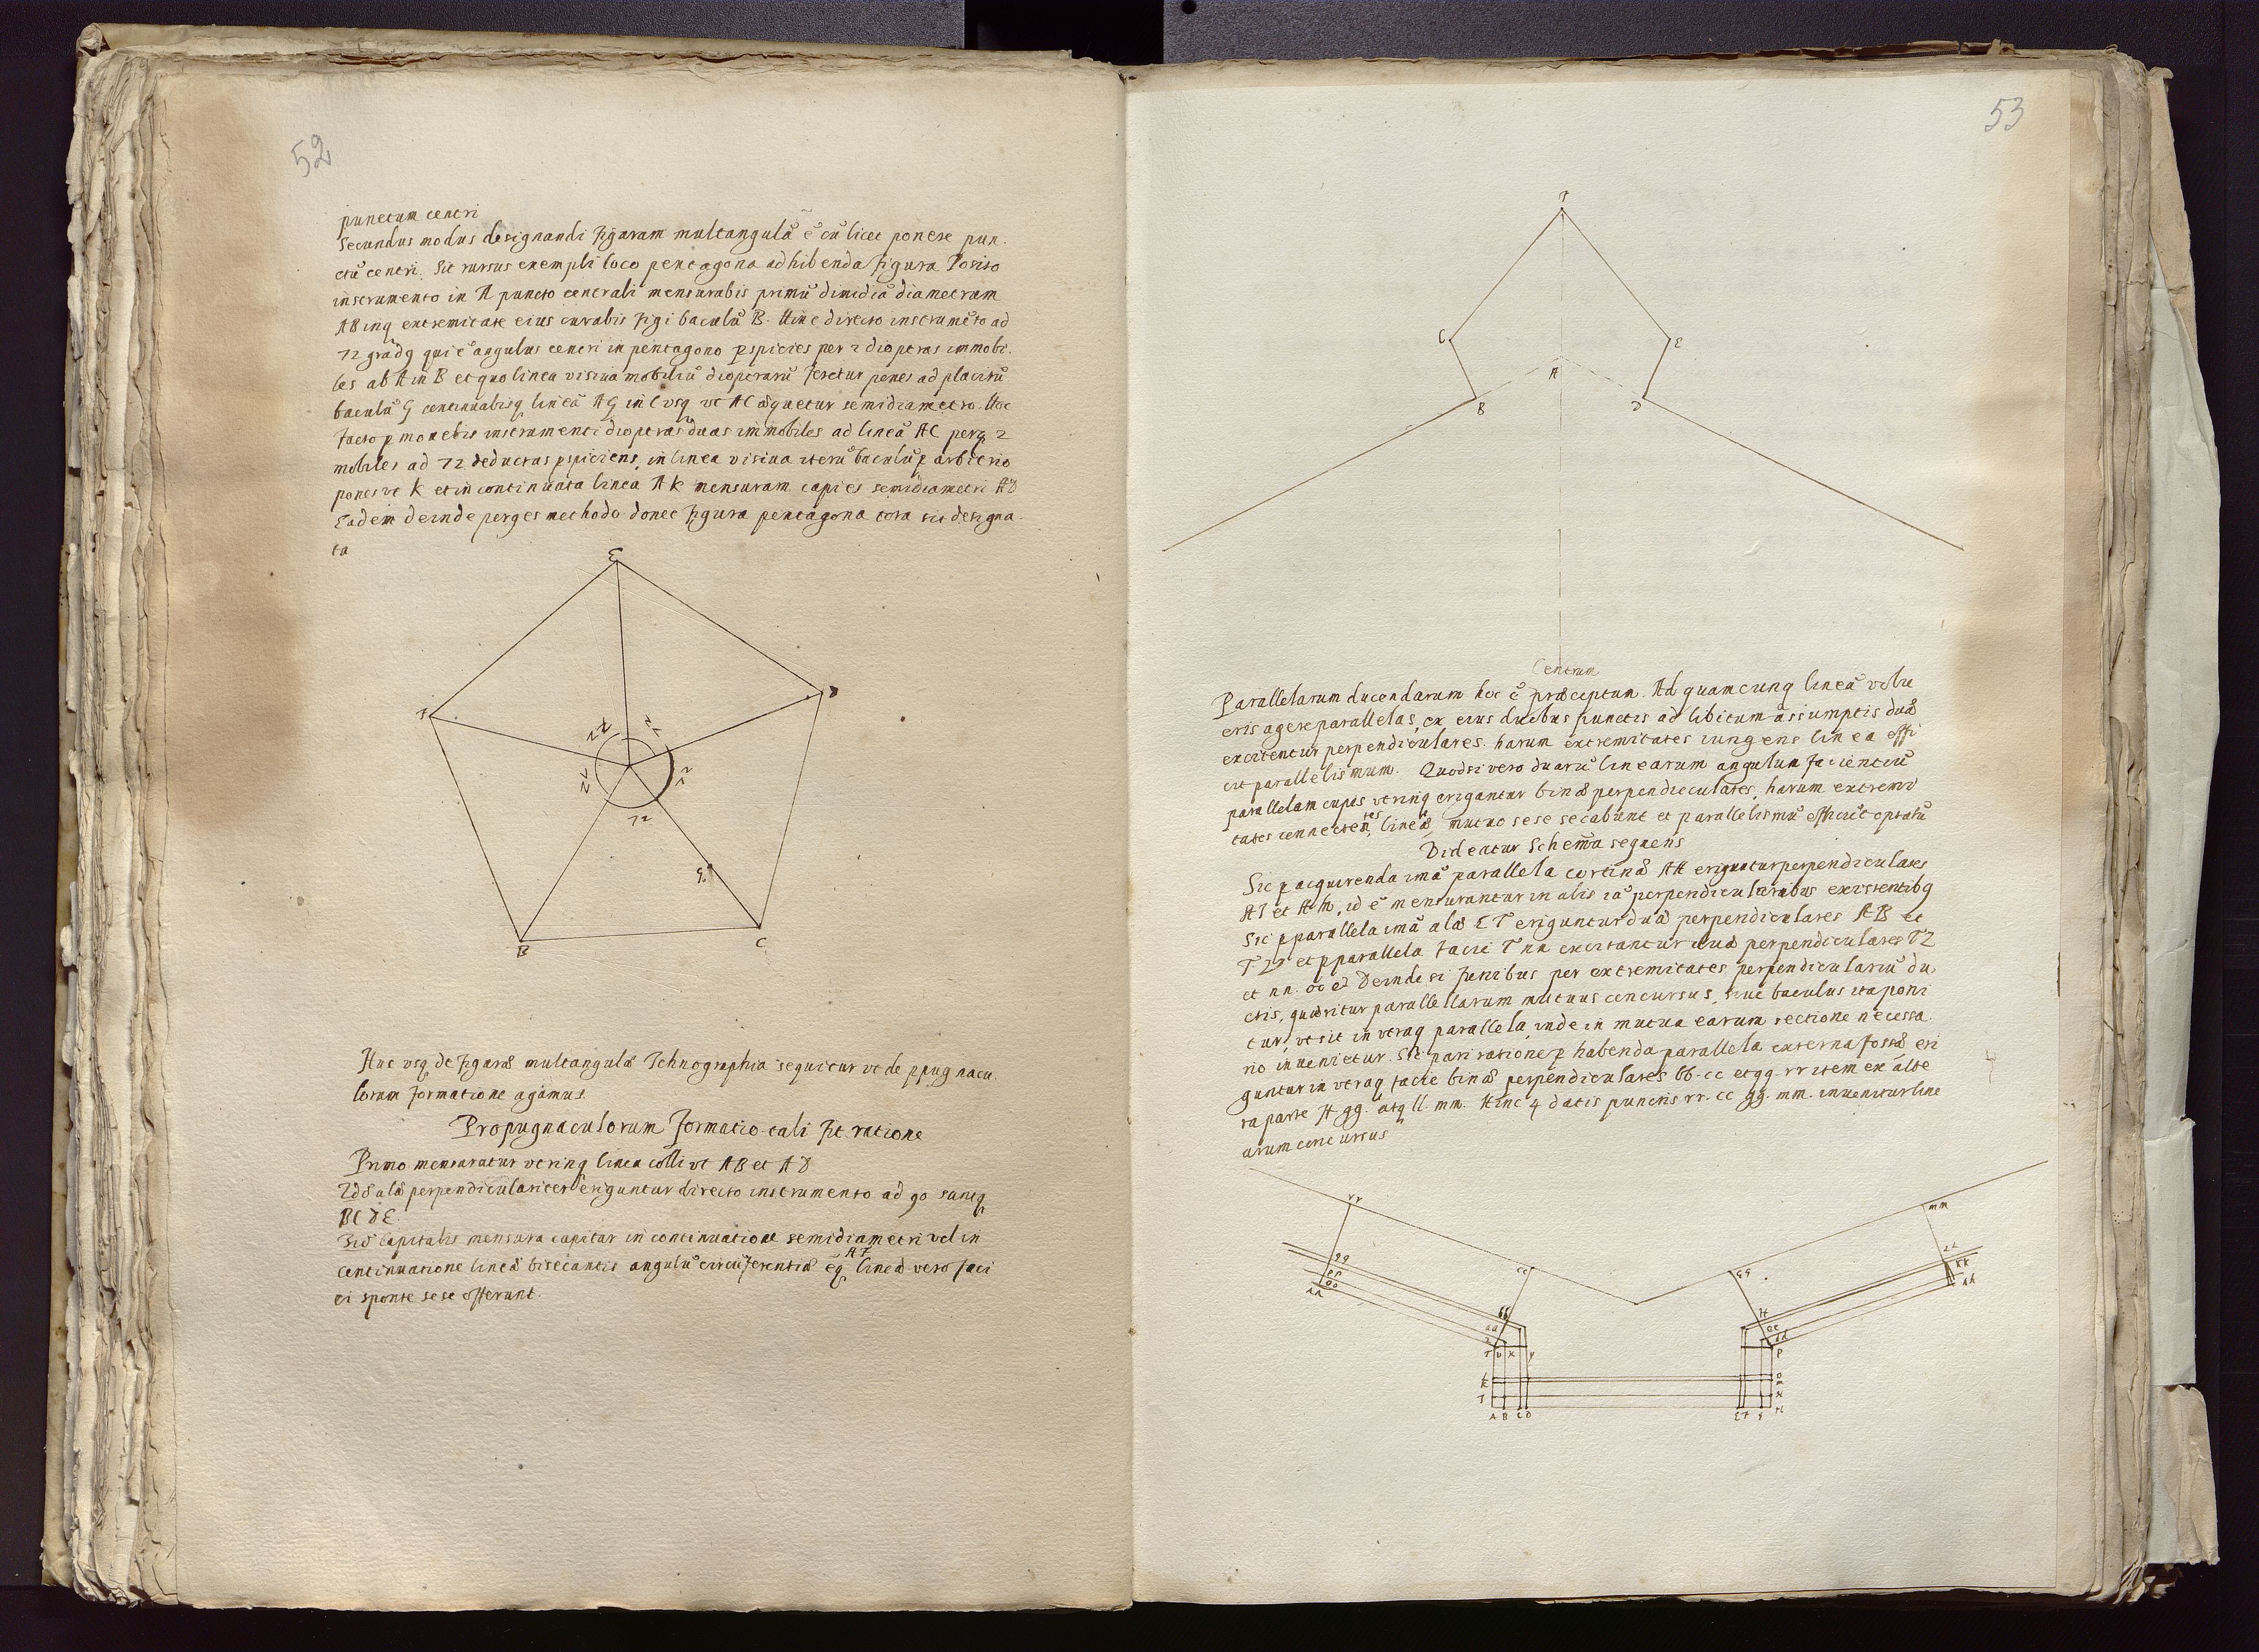 52
punctum centri
Secundus modus designandi figuram multangulã ẽ cũ licet ponere pun-
ctũ centri. Sit rursus exempli loco pentagona adhibenda figura Posito
instrumento in A puncto centrali mensurabis primũ dimidiã diametrum
AB inq extremitate eius curabis figi baculũ B. Hinc directo instrumẽto ad
72 gradq qui ẽ angulus centri in pentagono pspicies per 2 dioptras immobi-
les ab A in B et quo linea visiva mobiliũ dioptrarũ feretur penes ad placitũ
baculũ G continuabisq lineã AG in C vsq vt AC æquetur semidiametro. Hoc
facto pmovebis instrumenti dioptras duas immobiles ad lineã AC perq 2
mobiles ad 72 deductas pspiciens, in linea visiva iterũ baculũ p arbitrio
pones vt K et in continuata linea AK mensuram capies semidiametri AD
Eadem deinde perges methodo donec figura pentagona tota sit designa-
ta
E
F
D
72
72
72
72
72
G.
B
C
Huc vsq de figuræ multangulæ Ichnographia sequitur vt de ppugnacu-
lorum formatione agamus.
Propugnaculorum formatio tali fit ratione
Primo mensuratur vtrinq linea colli vt AB et AD
2dõ alæ perpendiculariter eriguntur directo instrumento ad 90 suntq
BC DE.
3iõ capitalis mensura capitur in continuatione semidiametri vel in
AF
continuatione lineæ bisecantis angulũ circũferentiæ ẽq lineæ vero faci
ei sponte sese offerunt.
53
F
C
E
A
B
D
Centrum
Parallelarum ducendarum hoc ẽ præceptum. Ad quamcunq lineã volu
eris agere parallelas, ex eius duobus punctis ad libitum assumptis duæ
excitentur perpendiculares. harum extremitates iungens linea effi
cit parallelismum. Quodsi vero duarũ linearum angulum facientiũ
parallelam cupis vtrinq erigantur binæ perpendiculares, harum extremi
tates connectentes, lineæ, mutuo sese secabunt et parallelismũ efficiũt optatũ
Videatur Schema sequens
Sic p acquirenda imã parallela cortinæ AH eriguntur perpendiculares
AI et HN, id ẽ mensurantur in alis iã perpendicularibus existentibq
Sic p parallela imã alæ ET eriguntur duæ perpendiculares AB et
et p parallela faciei T nn excitantur duæ perpendiculares TZ
et nn. oo et Deinde si funibus per extremitates perpendiculariũ du-
ctis, quæritur parallellarum mutuus concursus, sive baculus ita poni
tur, vt sit in vtraq parallela, inde in mutua earum sectione necessa-
rio invenietur. Sic pari ratione p habenda parallela externa fossæ eri
guntur in vtraq facie binæ perpendiculares bb. cc et qq. rr item ex alte
ra parte H gg. atq ll. mm. Hinc 4 datis punctis rr. cc gg. mm. invenitur line
arum concursus
rr
mm
qq
pp
oo
nn
cc
gg
ll
kk
hh
bb
aa
Z
T V X Y
H
ee
dd
P
L
K
I
O
M
N
H
A B C D
E F G